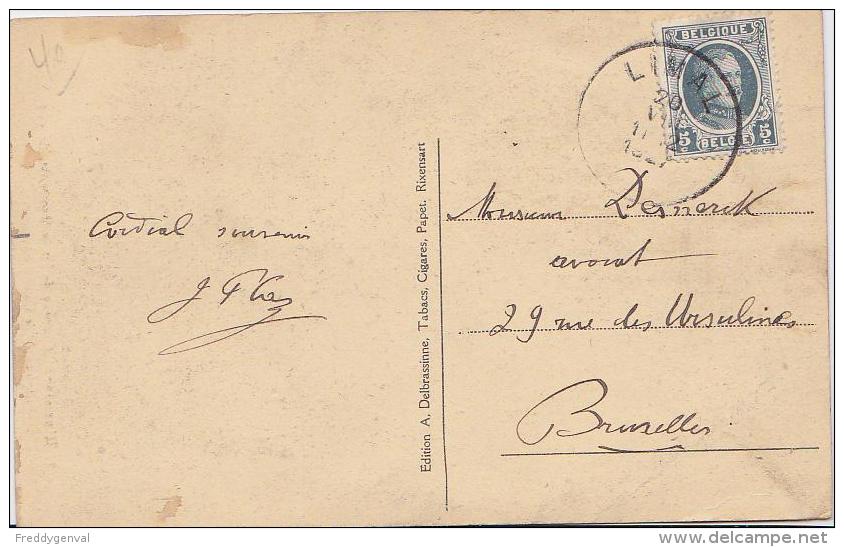 40
Cordial souvenir
Edition A. Delbrassinne, Tabacs, Cigares, Papet. Rixensart
BELGIQUE
5c 5c
(BELGIE)
LIMAL
20
Monsieur Desnerck
avocat
29 rue des Ursulines
Bruxelles
Freddygenval
delcampe.net